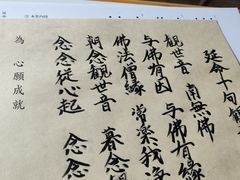 延命十句観
観世音　南無佛
与佛有因　与佛有縁
佛法僧縁　常楽我
朝念観世音　暮念
念念従心起　念念
為　心願成就